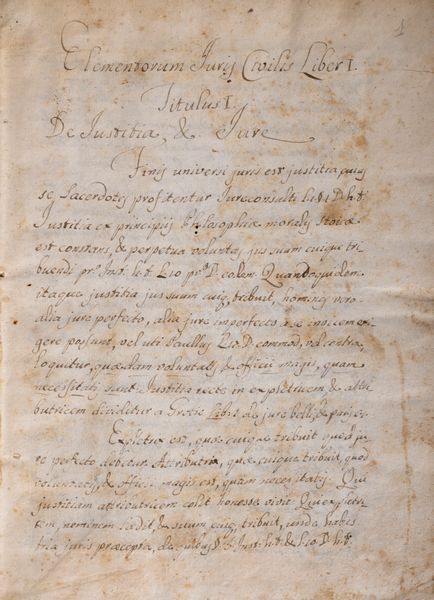 1
Elementorum Juris Civilis Liber I.
Titulus I.
De Justitia, & Jure
Finis universi juris est justitia, cuius
se, Sacerdotes profitentur Jureconsulti l. 1. D. h. t.
Justitia ex principiis Philosophiæ moralis Stoicæ
est constans, & perpetua voluntas jus suum cuique tri
buendi pr. Inst. h. t. L. 10 pr. D. eodem. Quandoquidem
itaque justitia jus suum cuiq; tribuit, homines vero
alia jure perfecto, alia jure imperfecto a se invicem exi
gere possunt, vel uti Paullus D. commod. vel contra,
loquitur, quædam voluntatis, & officii magis, quam
necessitatis sunt Justitia recte in expletricem & attri
butricem dividitur a Grotio Lib. 1. de jure belli, & pacis.
Expletrix est, quæ cuique tribuit quod ju
re perfecto debetur. Attributrix, quæ cuique tribuit, quod
voluntatis, & officii magis est, quam necessitatis. Qui
justitiam attributricem colit honeste vivit. Qui expletri
cem, neminem lædit, & suum cuiq; tribuit, unde habes
tria juris præcepta, de quibus § 3 Inst. h. t. & L. 10 D. h. t.